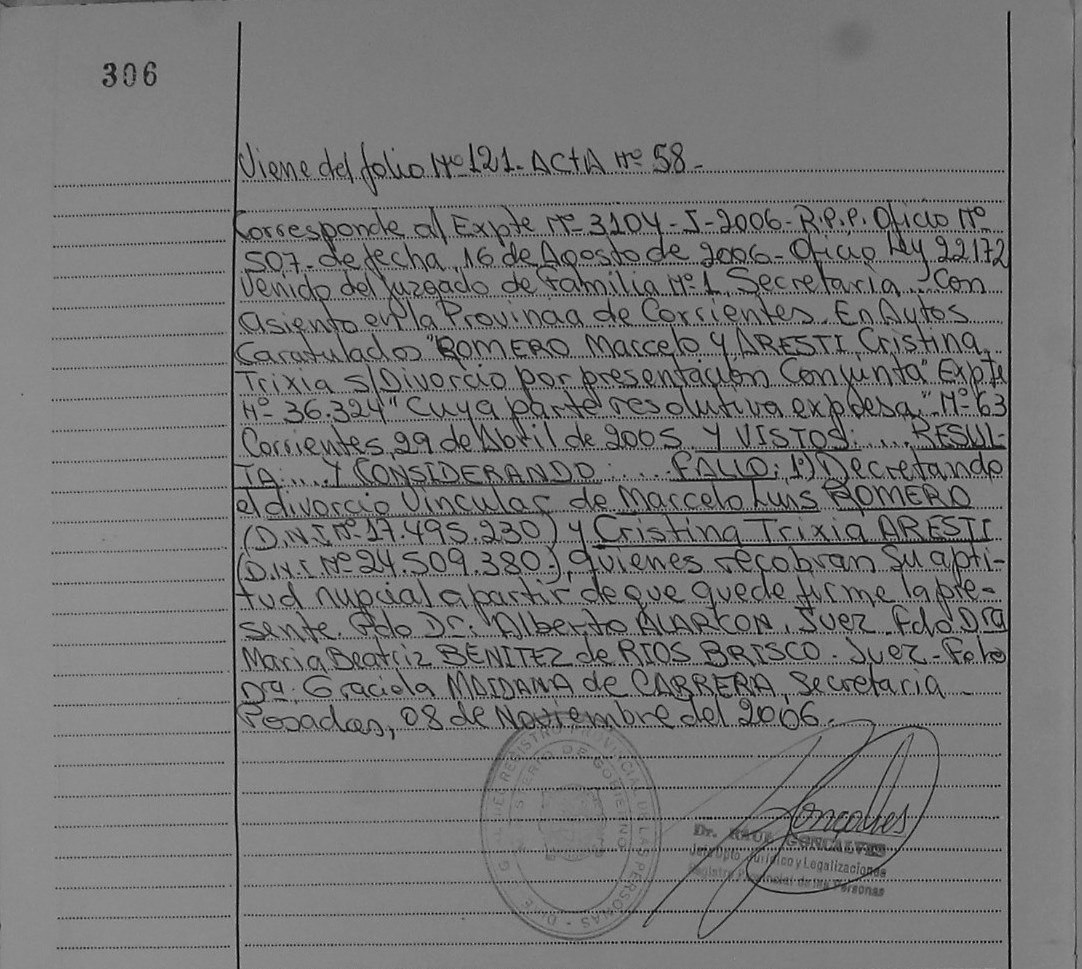 306
Viene del folio Nº 121- ACTA Nº 58-
Corresponde al Expte Nº 3104-J-2006-R.P.P. Oficio Nº
507- de fecha, 16 de Agosto de 2006- Oficio Ley 22172
Venido del Juzgado de Familia Nº 1, Secretaria - Con
asiento en la Provincia de Corrientes. En Autos
Caratulados "ROMERO Marcelo y ARESTI, Cristina
Trixia s/Divorcio por presentación Conjunta" Expte
Nº 36.324" Cuya parte resolutiva expresa" Nº 63
Corrientes, 29 de Abril de 2005 Y VISTOS: .... RESUL-
TA: .... Y CONSIDERANDO: .... FALLO: 1º) Decretando
el divorcio Vincular de Marcelo Luis ROMERO
(D.N.I Nº 17.495.230) y Cristina Trixia ARESTI
(D.N.I. Nº 24.509.380-), quienes recobran su apti-
tud nupcial a partir de que quede firme la pre-
sente. Fdo Dr. Alberto ALARCON, Juez - Fdo Dra
Maria Beatriz BENITEZ de RIOS BRISCO. Juez - Fdo
Dra. Graciela MAIDANA de CARRERA, Secretaria -
Posadas, 08 de Noviembre del 2006.
REGISTRO PROVINCIAL DE LAS PERSONAS
DE GOBIERNO
Goncalves
Dr. RAUL GONCALVES
Jefe Dpto. Jurídico y Legalizaciones
Registro Provincial de las Personas